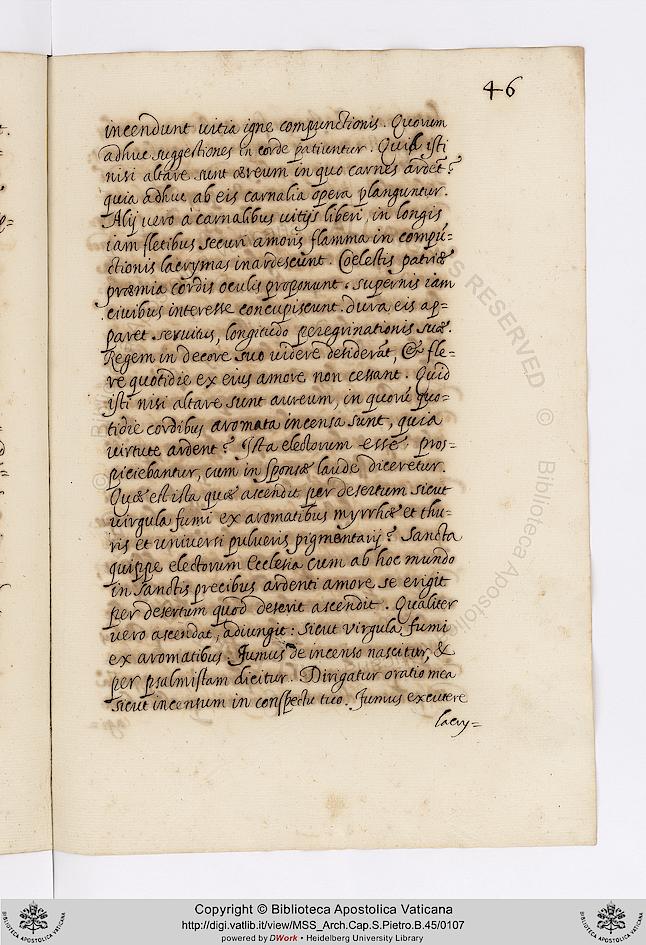 46
incendunt uitia igne compunctionis. Quorum
adhuc suggestiones in corde patiuntur. Quid isti
nisi altare sunt æreum in quo carnes ardet?
quia adhuc ab eis carnalia opera planguntur.
Alij uero à carnalibus uitijs liberi, in longis
iam fletibus securi amoris flamma in compũ=
ctionis lacrymas inardescunt. Cœlestis patriæ
præmia cordis oculis proponunt. supernis iam
ciuibus interesse concupiscunt. dura, eis ap=
paret seruitus, longitudo peregrinationis suæ.
Regem in decore suo uidere desiderãt, & fle=
re quotidie ex eius amore non cessant. Quid
isti nisi altare sunt aureum, in quorũ quo=
tidie cordibus aromata incensa sunt, quia
uirtute ardent? Ista electorum esse pros=
piciebantur, cum in sponsæ laude diceretur.
Quæ est ista quæ ascendit per desertum sicut
uirgula fumi ex aromatibus myrrhæ et thu=
ris et uniuersi pulueris pigmentarij? Sancta
quippe electorum Ecclesia cum ab hoc mundo
in sanctis precibus ardenti amore se erigit
per desertum quod deserit ascendit. Qualiter
uero ascendat, adiungit: sicut virgula fumi
ex aromatibus. fumus de incenso nascitur, &
per psalmistam dicitur. Dirigatur oratio mea
sicut incensum in conspectu tuo. fumus excutere
lacry=
© Biblioteca Apostolica
RIGHTS RESERVED ©
BIBLIOTECA APOSTOLICA VATICANA
Copyright © Biblioteca Apostolica Vaticana
http://digi.vatlib.it/view/MSS_Arch.Cap.S.Pietro.B.45/0107
powered by DWork • Heidelberg University Library
BIBLIOTECA APOSTOLICA VATICANA